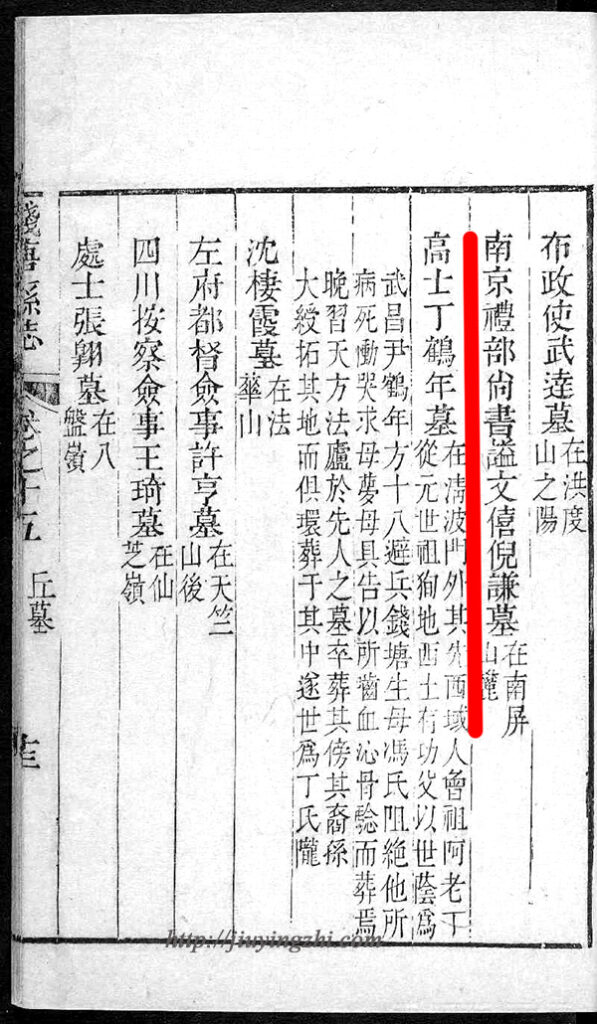 布政使武達墓在洪度
山之陽
南京禮部尚書謚文僖倪謙墓在南屏
山麓
高士丁鶴年墓在淸波門外其先西域人曾祖阿老丁
從元世祖狥地西土有功父以世蔭爲
武昌尹鶴年方十八避兵錢塘生母馮氏阻絶他所
病死慟哭求母夢母具告以所齒血沁骨驗而葬焉
晚習天方法廬於先人之墓卒葬其傍其裔孫
大綬拓其地而俱環葬于其中遂世爲丁氏隴
沈棲霞墓在法
華山
左府都督僉事許亨墓在天竺
山後
四川按察僉事王琦墓在仙
芝嶺
處士張翱墓在八
盤嶺
錢塘縣志 卷之十五 丘墓
http://jiuyingzhi.com